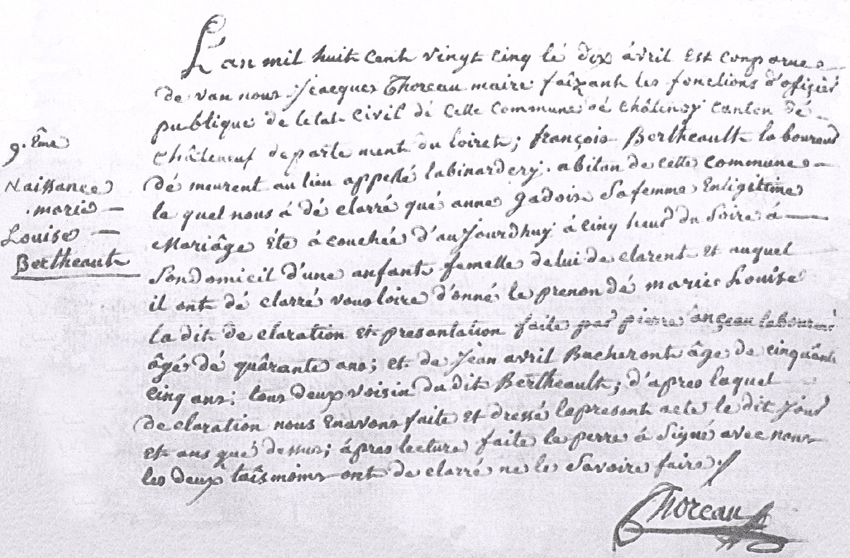 L'an mil huit cent vingt cinq lé dix âvril Est conparue
de van nous Jeacques Thoreau maire faizant les fonctions d'ofizier
publique de letat Civil dé Cette Commune dé Châtenoy Canton dé
Châteneuf departe ment du loiret; françois Bertheault laboureur
dé meurent au lieu appellé labinardery. abitan de cette commune
le quel nous à dé clarré qué anne gadois Safemme En ligitime
Mariâge Eté àcouchée d'aujourdhuy à Cinq heur du Soire à
Son domicil d'une anfante femelle de lui de clarent et auquel
il ont dé clarré vous loire d'onné le prenon dé maries Louise
la dit de claration et presantation faite par pierre ançeau laboureur
âgés dé quârante ans; et de Jean avril Bacheront âge de cinquante
Cinq ans; tous deux voisin du dit Bertheault; d'apres laquel
de claration nous Enavons faite et dressé lapresent acte le dit Jour
Et ans qué dessus; âpres lecture faite le perre à Signé avec nous
les deux taismoins ont de clarré ne le Savoire faire
9.ême
Naissance
marie
Louise
Bertheault
Thoreau